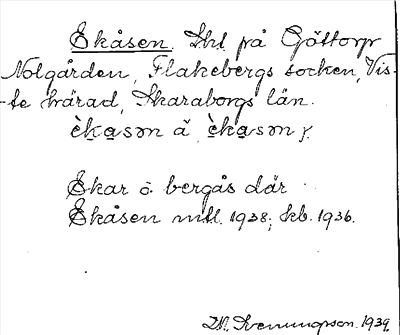 Ekåsen. Skl på Göttorp
Nolgården, Flakebergs socken, Vis-
te härad, Skaraborgs län.
èkasən å̀ èkasən
Ekar ö bergås där
Ekåsen mtl. 1938; kb. 1936.
1939.